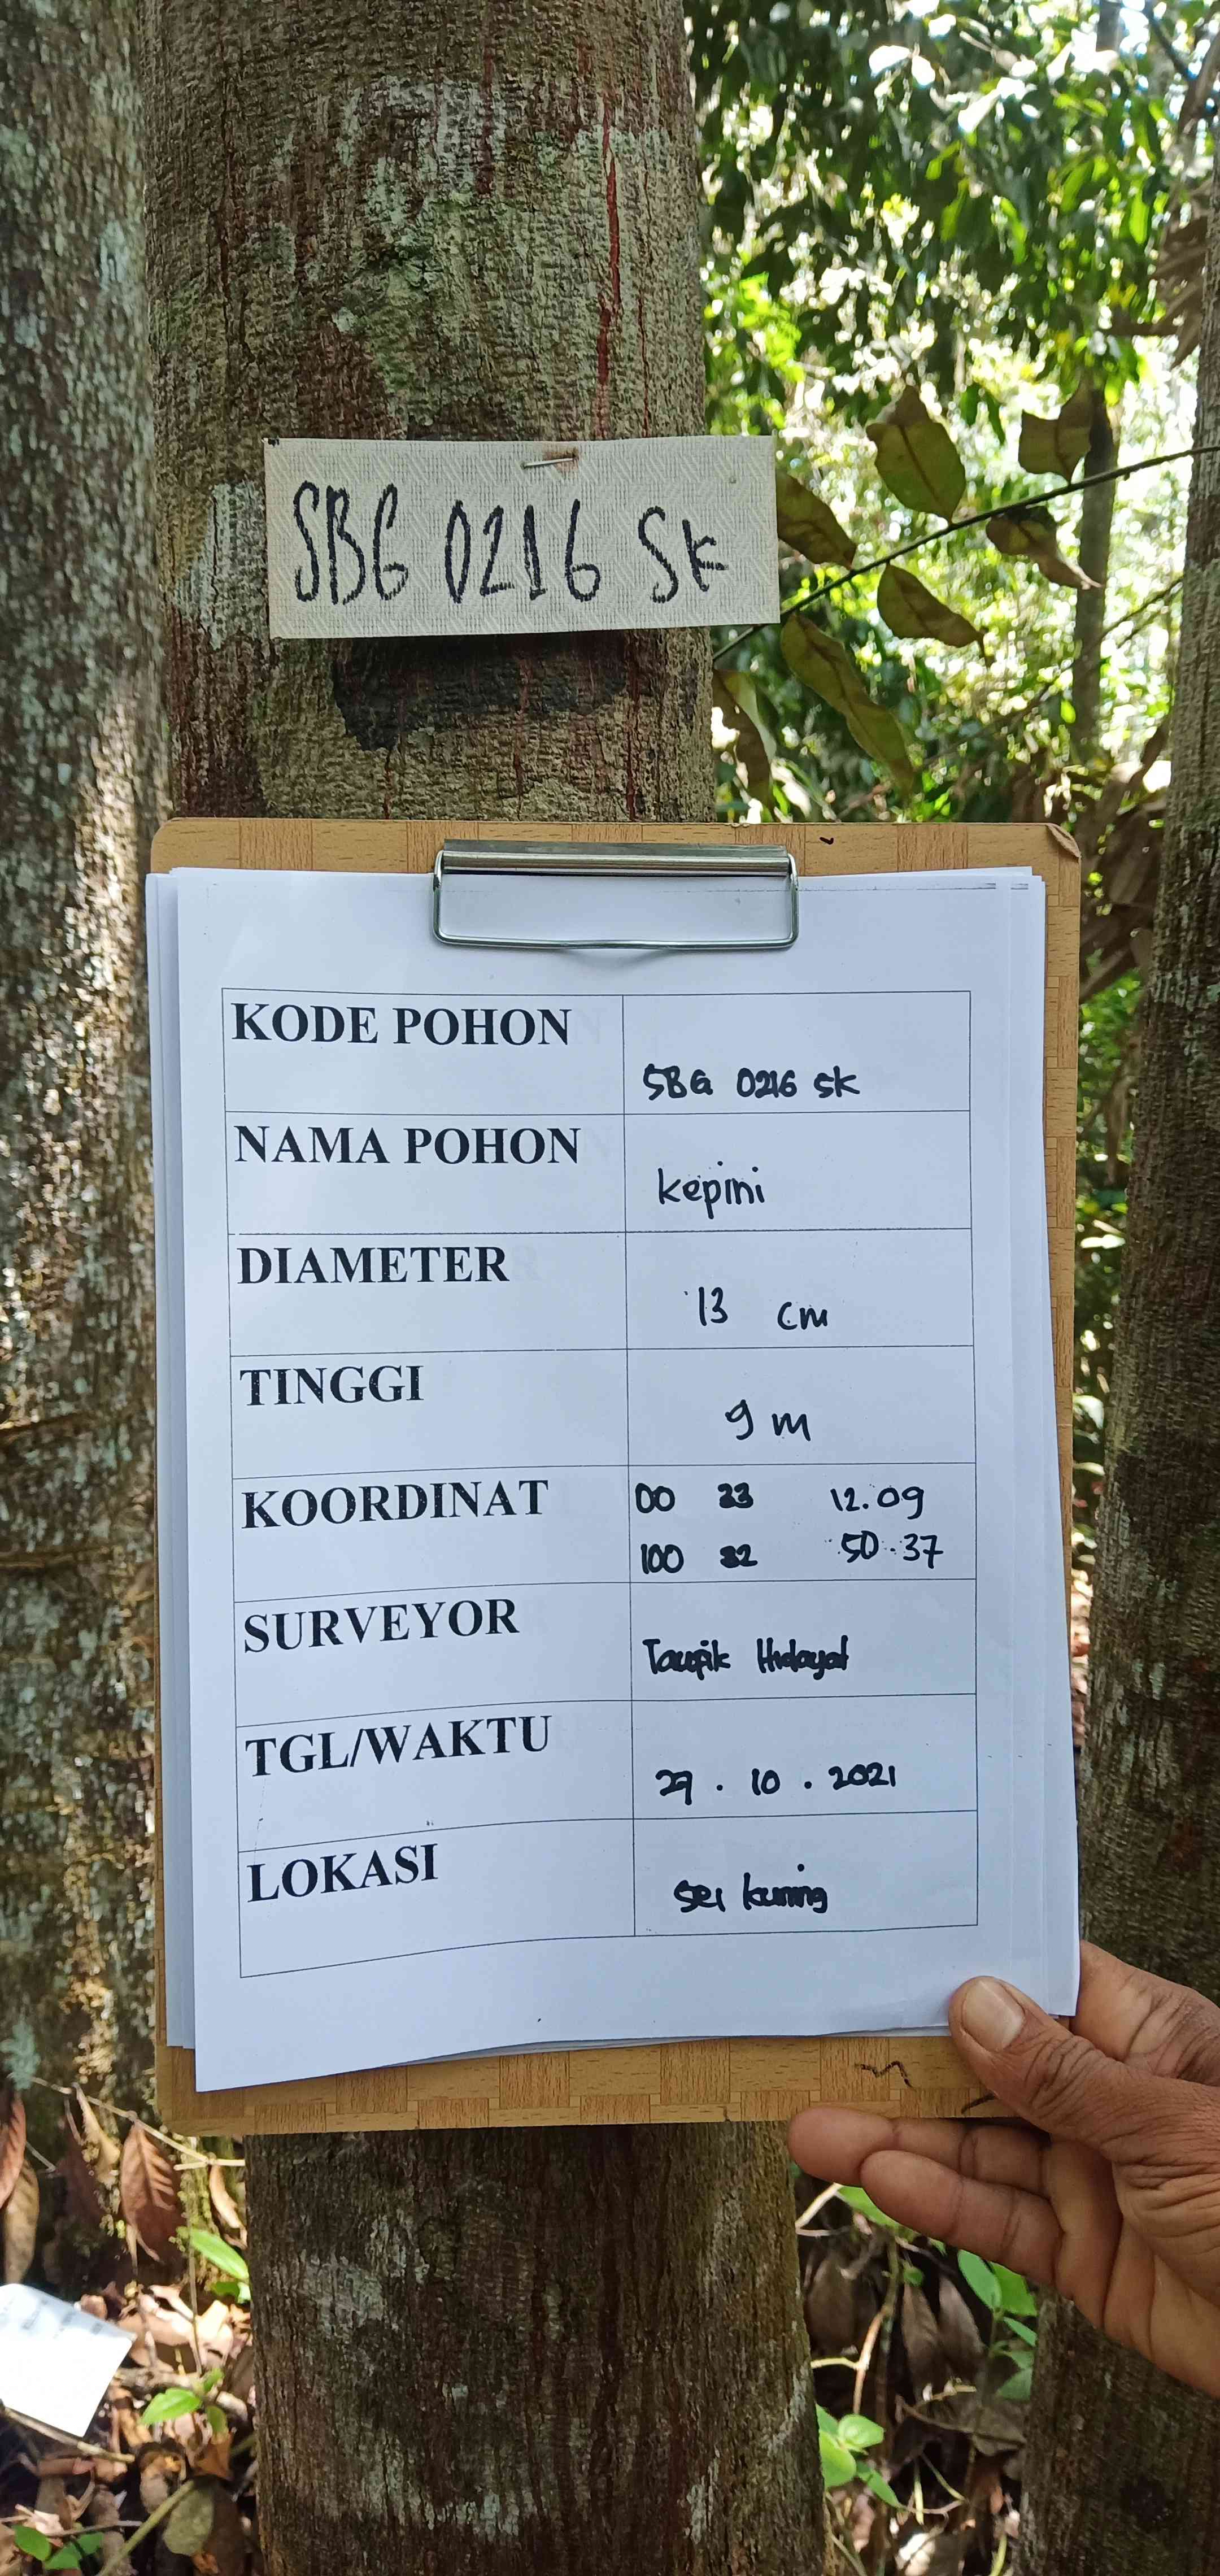 SBG 0216 SK
KODE POHON
SBG 0216 SK
NAMA POHON
Kepini
DIAMETER
13 cm
TINGGI
9 m
KOORDINAT
00 33 12.09
100 32 50.37
SURVEYOR
Taufik Hidayat
TGL/WAKTU
29.10.2021
LOKASI
Sei kuning